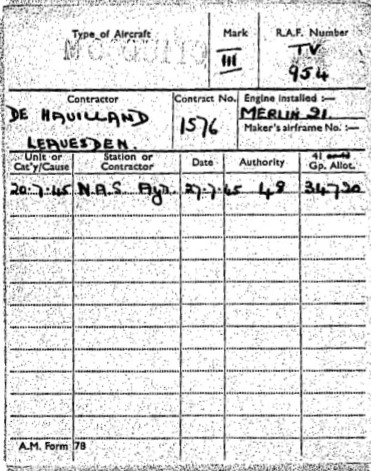 Type of Aircraft Mark R.A.F. Number
III TV
954
Contractor Contract No. Engine installed :—
DE HAVILLAND MERLIN 21.
1576 Maker's airframe No. :—
LEAVESDEN.
Unit or Cat'y/Cause Station or Contractor Date Authority 41 Gp. Allot.
20.7.45 N.A.S. Ayr. 27.7.45 48 34720
A.M. Form 78